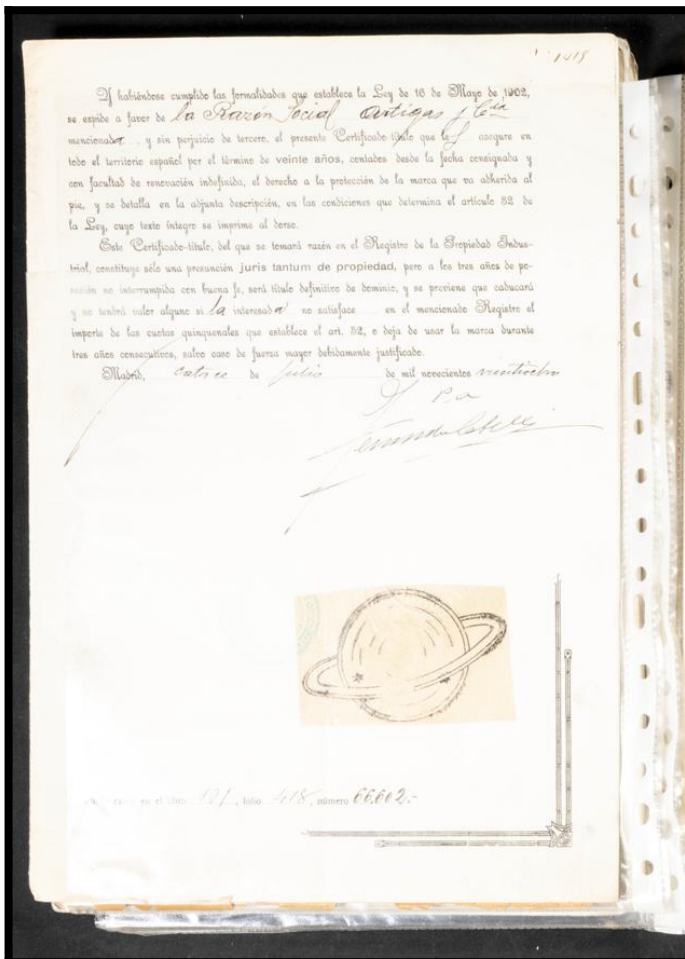 1418
Y habiéndose cumplido las formalidades que establece la Ley de 16 de Mayo de 1902,
se expide a favor de la Razón Social Artigas y Cía
mencionada, y sin perjuicio de tercero, el presente Certificado-título que le asegure en
todo el territorio español por el término de veinte años, contados desde la fecha consignada y
con facultad de renovación indefinida, el derecho a la protección de la marca que va adherida al
pie, y se detalla en la adjunta descripción, en las condiciones que determina el artículo 32 de
la Ley, cuyo texto íntegro se imprime al dorso.
Este Certificado-título, del que se tomará razón en el Registro de la Propiedad Indus-
trial, constituye sólo una presunción juris tantum de propiedad, pero a los tres años de po-
sesión no interrumpida con buena fe, será título definitivo de dominio, y se previene que caducará
y no tendrá valor alguno si la interesada no satisface en el mencionado Registro el
importe de las cuotas quinquenales que establece el art. 52, o deja de usar la marca durante
tres años consecutivos, salvo caso de fuerza mayor debidamente justificado.
Madrid, catorce de julio de mil novecientos veintiocho
P. A.
en el libro 121, folio 418, número 66.602.-